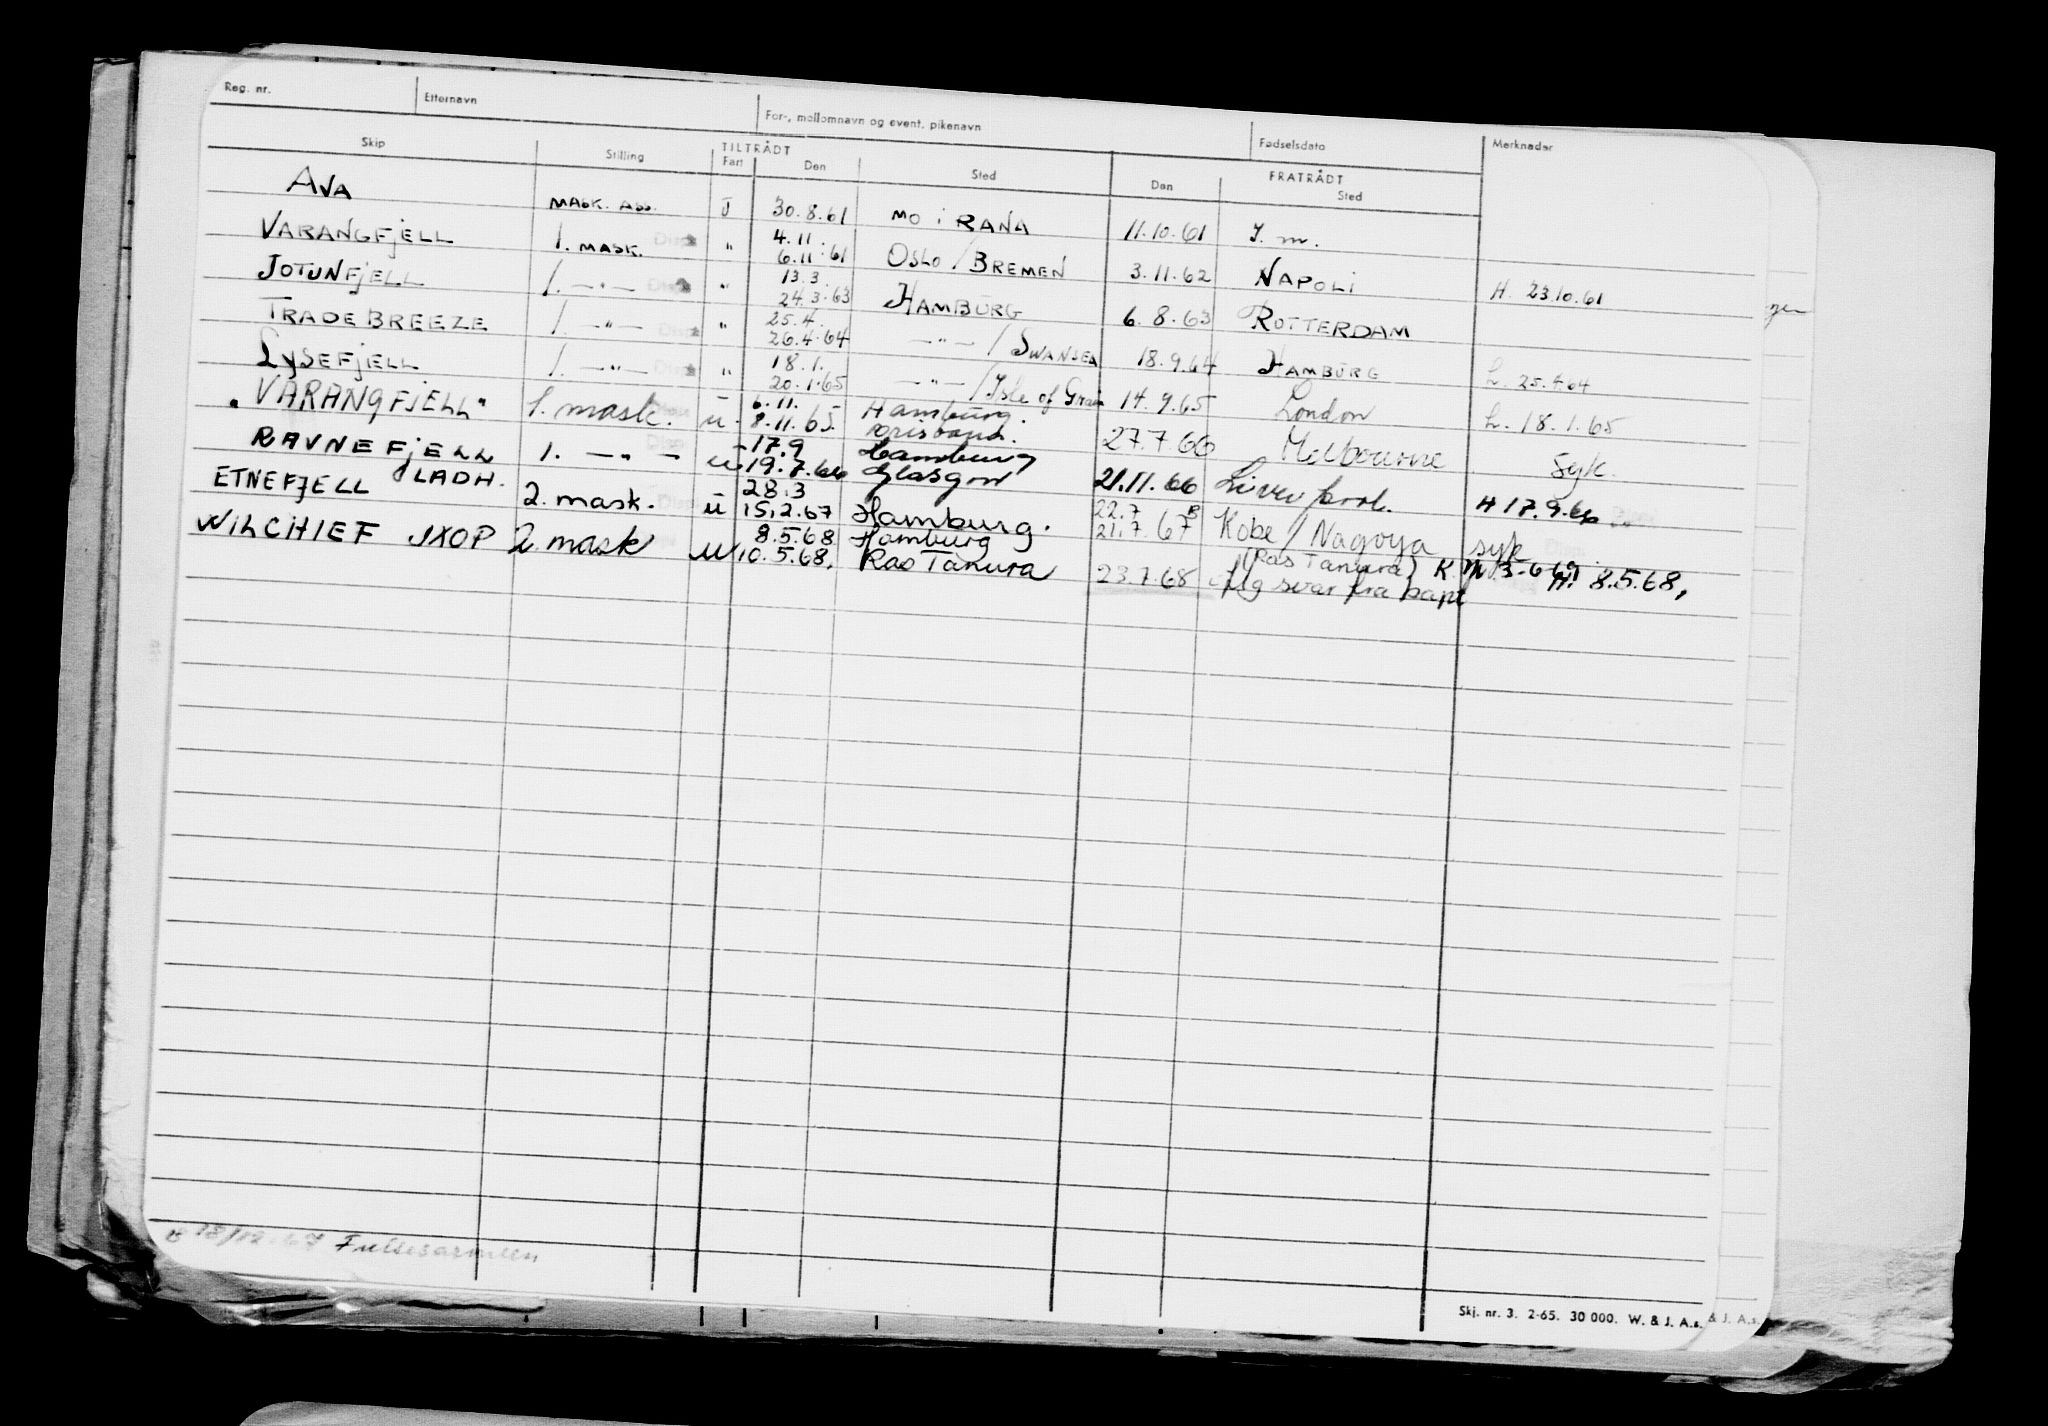 Reg. nr. Etternavn For-, mellomnavn og event. pikenavn Fødselsdato Merknader
Skip Stilling TILTRÅDT Fart Den Sted Den FRATRÅDT Sted
AVA MASK. ASS. U 30.8.61 MO i RANA 11.10.61
VARANGFJELL 1. MASK. " 4.11. 6.11.61 OSLO / BREMEN 3.11.62 NAPOLI H. 23.10.61
JOTUNFJELL 1. —"— " 13.3. 24.3.63 HAMBURG 6.8.63 ROTTERDAM
TRADE BREEZE 1. —"— " 25.4. 26.4.64 —"— / SWANSEA 18.9.64 HAMBURG L. 25.4.64
LYSEFJELL 1. —"— " 18.1. 20.1.65 —"— / Isle of Grain 14.9.65 London L. 18.1.65
"VARANGFJELL" 1. mask. u 6.11. 8.11.65 Hamburg 27.7.66 Melbourne Syk.
RAVNEFJELL LADH. 1. —"— u 17.9 19.7.66 Hamburg Glasgow 21.11.66 Liverpool. H 17.9.66
ETNEFJELL 2. mask. u 28.3 15.2.67 Hamburg. 22.7 21.7.67 Kobe / Nagoya syk
WILCHIEF JXOP 2. mask u 8.5.68 10.5.68, Hamburg Ras Tanura 23.7.68 (Ras Tanura) svar fra kapt H. 8.5.68,
Skj. nr. 3. 2-65. 30 000. W. & J. A.s. & J. A.s.